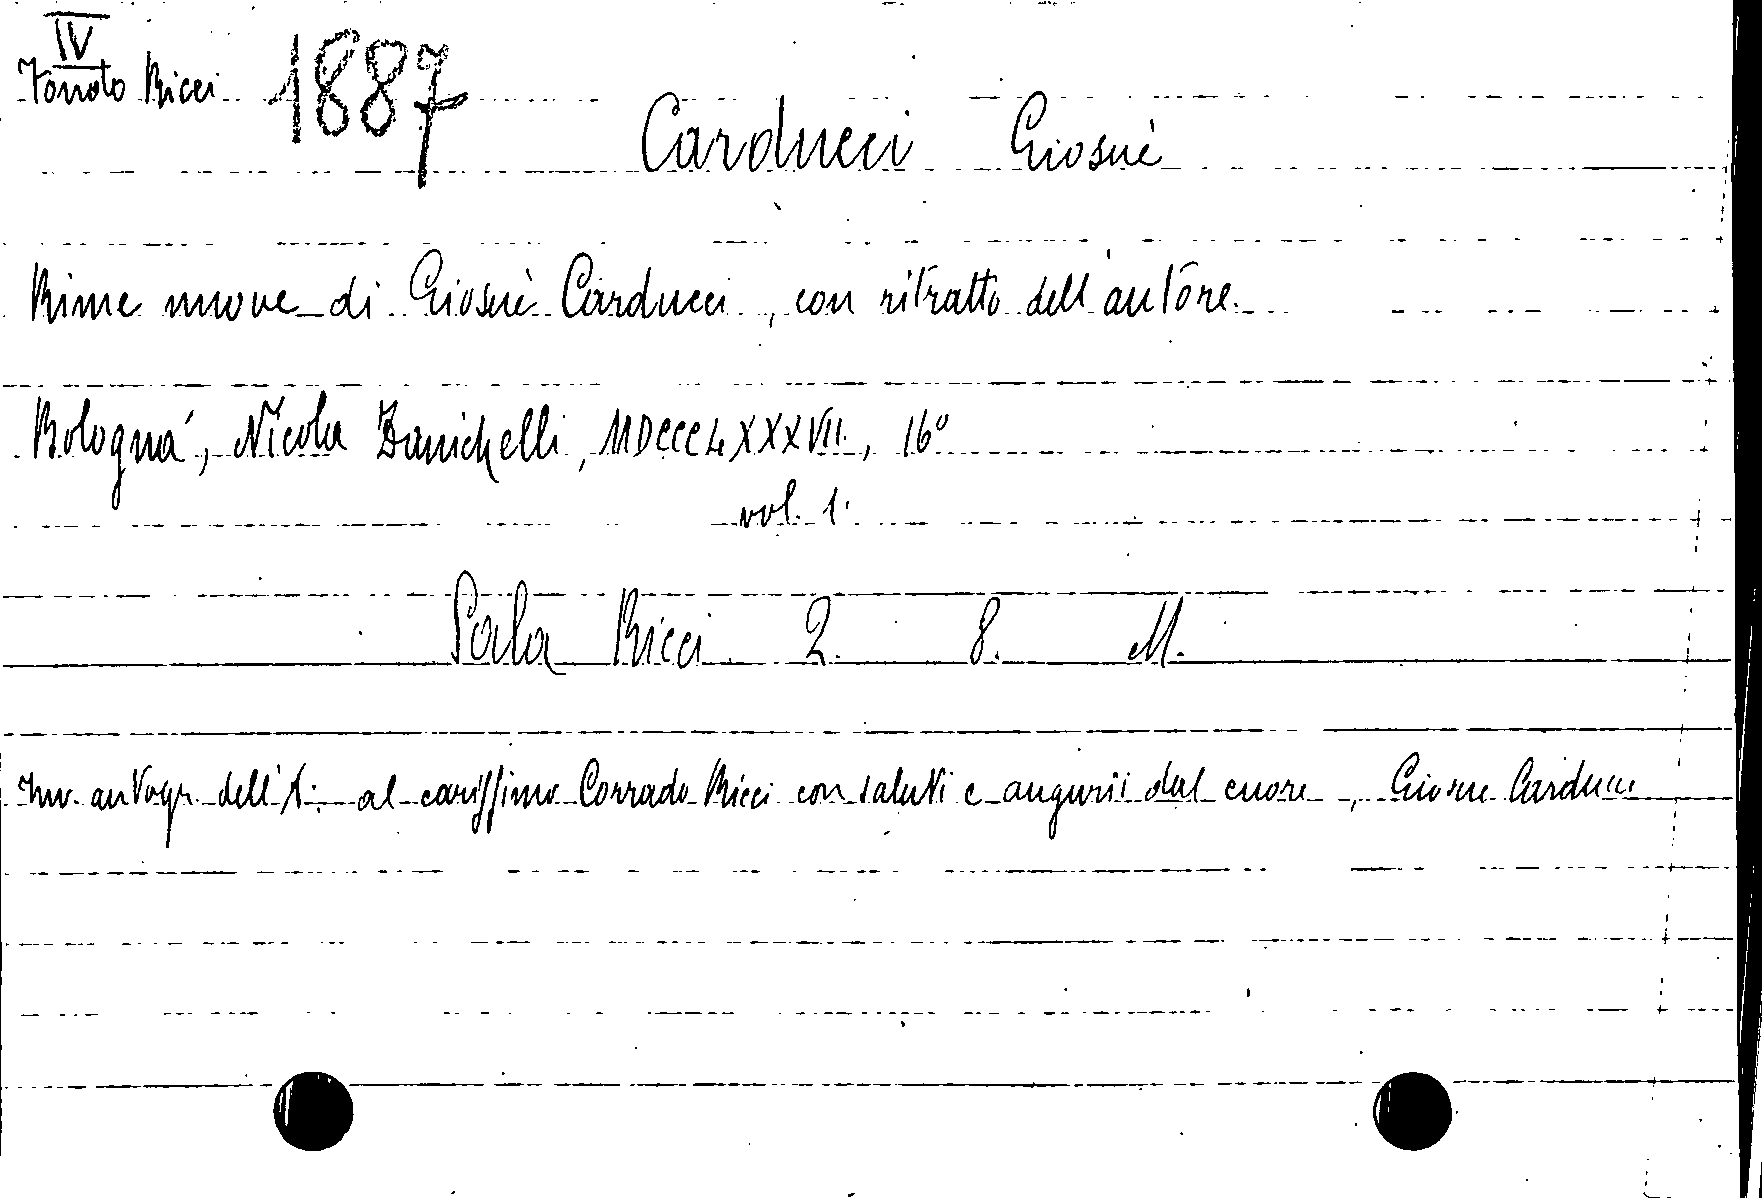 IV
Fondo Ricci 1887
Carducci Giosuè
Rime nuove di Giosuè Carducci, con ritratto dell'autore.
Bologna, Nicola Zanichelli, MDCCCLXXXVII., 16°
vol. 1.
Sala Ricci 2. 8. M.
Inv. autogr. dell'A.: al carissimo Corrado Ricci con saluti e augurii dal cuore, Giosue Carducci